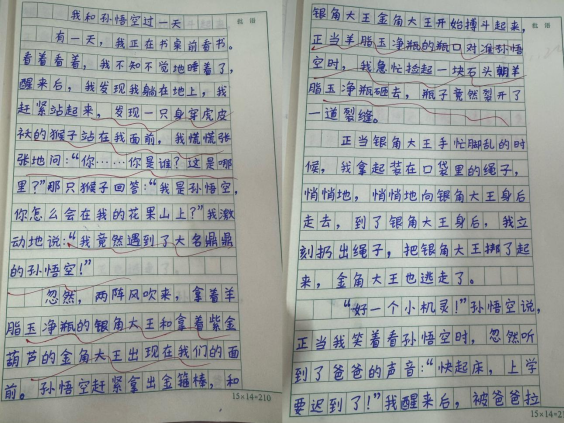 批 语
我和孙悟空过一天
有一天，我正在书桌前看书。
看着看着，我不知不觉地睡着了，
醒来后，我发现我躺在地上，我
赶紧站起来，发现一只身穿虎皮
袄的猴子站在我面前，我慌慌张
张地问：“你……你是谁？这是哪
里？”那只猴子回答：“我是孙悟空，
你怎么会在我的花果山上？”我激
动地说：“我竟然遇到了大名鼎鼎
的孙悟空！”
忽然，两阵风吹来，拿着羊
脂玉净瓶的银角大王和拿着紫金
葫芦的金角大王出现在我们的面
前。孙悟空赶紧拿出金箍棒，和
15×14=210
批 语
银角大王金角大王开始搏斗起来，
正当羊脂玉净瓶的瓶口对准孙悟
空时，我急忙捡起一块石头朝羊
脂玉净瓶砸去，瓶子竟然裂开了
一道裂缝。
正当银角大王手忙脚乱的时
候，我拿起装在口袋里的绳子，
悄悄地，悄悄地向银角大王身后
走去，到了银角大王身后，我立
刻扔出绳子，把银角大王绑了起
来，金角大王也逃走了。
“好一个小机灵！”孙悟空说，
正当我笑着看孙悟空时，忽然听
到了爸爸的声音：“快起床，上学
要迟到了！”我醒来后，被爸爸拉